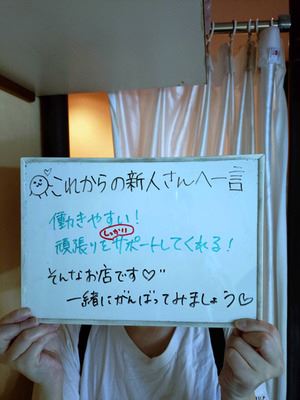 これからの新人さんへ一言
働きやすい!
頑張りをしっかりサポートしてくれる!
そんなお店です♡
一緒にがんばってみましょう♡